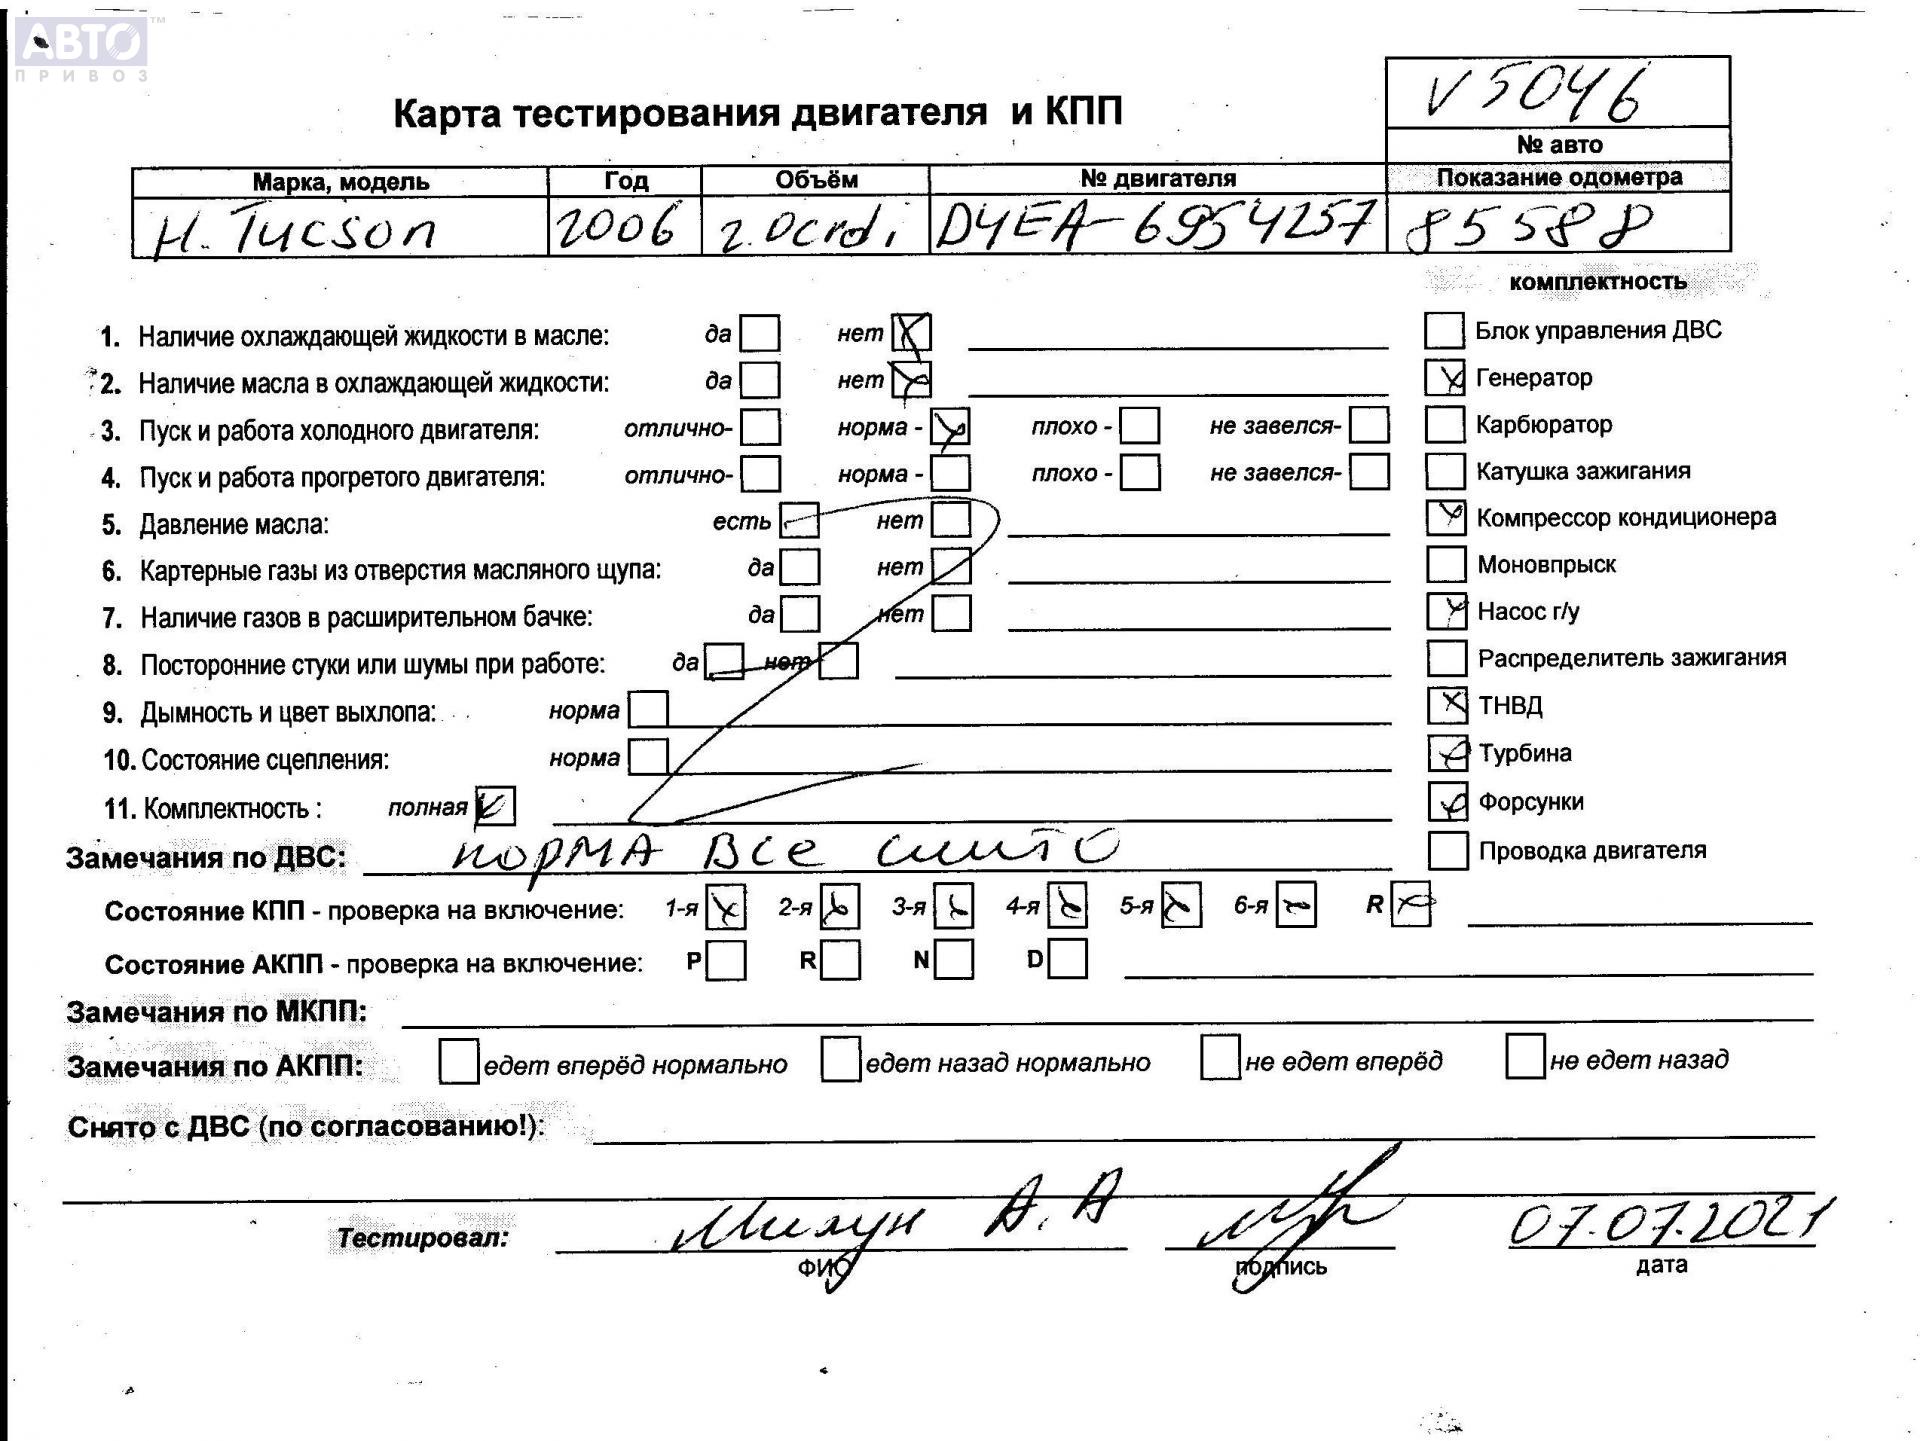 АВТО™
ПРИВОЗ
V 5046
Карта тестирования двигателя и КПП
№ авто
Марка, модель Год Объём № двигателя Показание одометра
H. Tucson 2006 2.0crdi D4EA-6954257 85588
комплектность
1. Наличие охлаждающей жидкости в масле: да нет
Блок управления ДВС
2. Наличие масла в охлаждающей жидкости: да нет
Генератор
3. Пуск и работа холодного двигателя: отлично- норма - плохо - не завелся-
Карбюратор
4. Пуск и работа прогретого двигателя: отлично- норма - плохо - не завелся-
Катушка зажигания
5. Давление масла: есть нет
Компрессор кондиционера
6. Картерные газы из отверстия масляного щупа: да нет
Моновпрыск
7. Наличие газов в расширительном бачке: да нет
Насос г/у
8. Посторонние стуки или шумы при работе: да нет
Распределитель зажигания
9. Дымность и цвет выхлопа: норма
ТНВД
10. Состояние сцепления: норма
Турбина
11. Комплектность : полная
Форсунки
Замечания по ДВС: норма все снято
Проводка двигателя
Состояние КПП - проверка на включение: 1-я 2-я 3-я 4-я 5-я 6-я R
Состояние АКПП - проверка на включение: P R N D
Замечания по МКПП:
Замечания по АКПП: едет вперёд нормально едет назад нормально не едет вперёд не едет назад
Снято с ДВС (по согласованию!):
Тестировал: А.А 07.07.2021
ФИО подпись дата